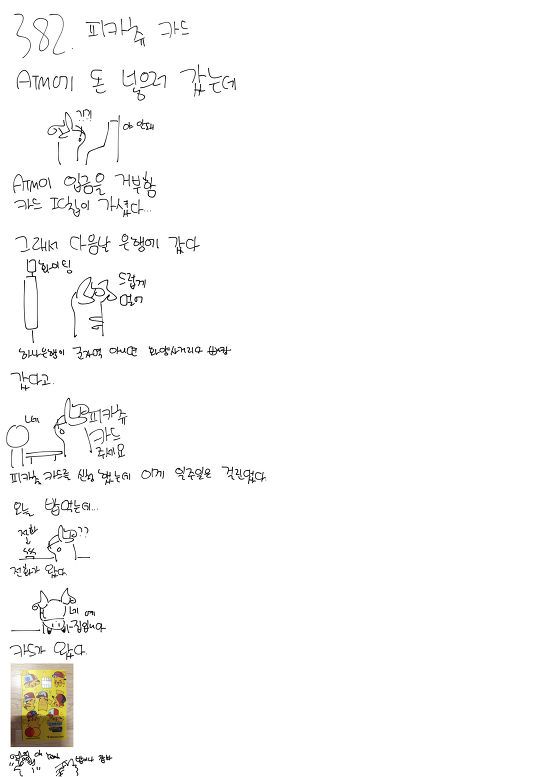 382. 피카츄 카드
ATM에 돈 넣으러 갔는데
기기
야 안돼
ATM이 입금을 거부함
카드 IC칩이 가셨다...
그래서 다음날 은행에 갔다
화이팅
드럽게
멀어
하나은행이 군자역 아니면 화양사거리
갔다고.
네
피카츄
카드
주세요
피카츄 카드를 신청했는데 이게 일주일은 걸린댔다
오늘 밥먹는데...
전화
??
전화가 왔다
네
집입니다
카드가 왔다.